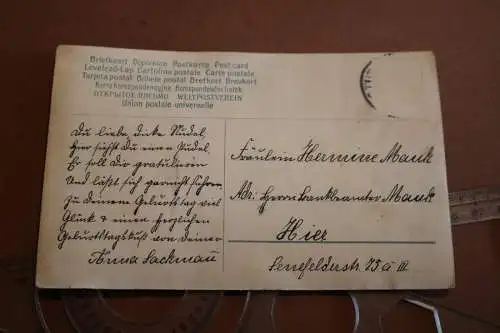 Briefkaart Dopisnice Postkarte Post card
Levelező-Lap Cartolina postale Carte postale
Tarjeta postal Bilhete postal Brefkort Brevkort
Karta korespondencyjna Korespondenční lístek
ОТКРЫТОЕ ПИСЬМО WELTPOSTVEREIN
Union postale universelle
Du liebe, dicke Nudel,
Hier siehst Du einen Pudel.
Er soll Dir gratulieren
Und läßt sich garnicht führen.
Zu Deinem Geburtstag viel
Glück & einen herzlichen
Geburtstagskuß von Deiner
Anna Lackmau
Fräulein Hermine Mauk
Adr: Herrn Bankbeamter Mauk
Hier
Senefelderstr. 75 a III